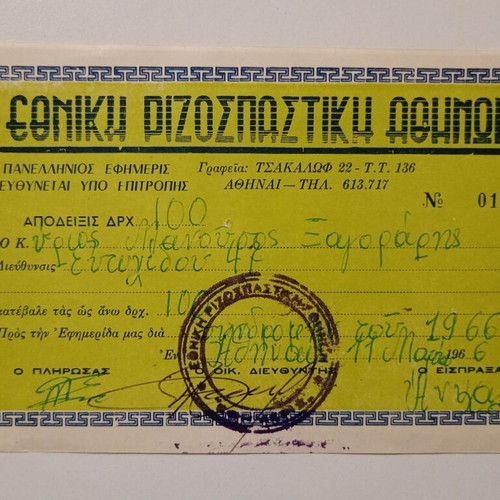 ΕΘΝΙΚΗ ΡΙΖΟΣΠΑΣΤΙΚΗ ΑΘΗΝΩ
ΠΑΝΕΛΛΗΝΙΟΣ ΕΦΗΜΕΡΙΣ
ΕΥΘΥΝΕΤΑΙ ΥΠΟ ΕΠΙΤΡΟΠΗΣ
Γραφεῖα: ΤΣΑΚΑΛΩΦ 22 - Τ.Τ. 136
ΑΘΗΝΑΙ — ΤΗΛ. 613.717
№ 01
ΑΠΟΔΕΙΞΙΣ ΔΡΧ. 100
Ο Κ.
Διεύθυνσις
κατέβαλε τὰς ὡς ἄνω δρχ. 100
Πρὸς τὴν Ἐφημερίδα μας διὰ τοῦ 1966
Ἐν Ἀθήναις 11 196 6
Ο ΠΛΗΡΩΣΑΣ
Ο ΟΙΚ. ΔΙΕΥΘΥΝΤΗΣ
Ο ΕΙΣΠΡΑΞΑ
ΕΘΝΙΚΗ ΡΙΖΟΣΠΑΣΤΙΚΗ ΑΘΗΝΩΝ